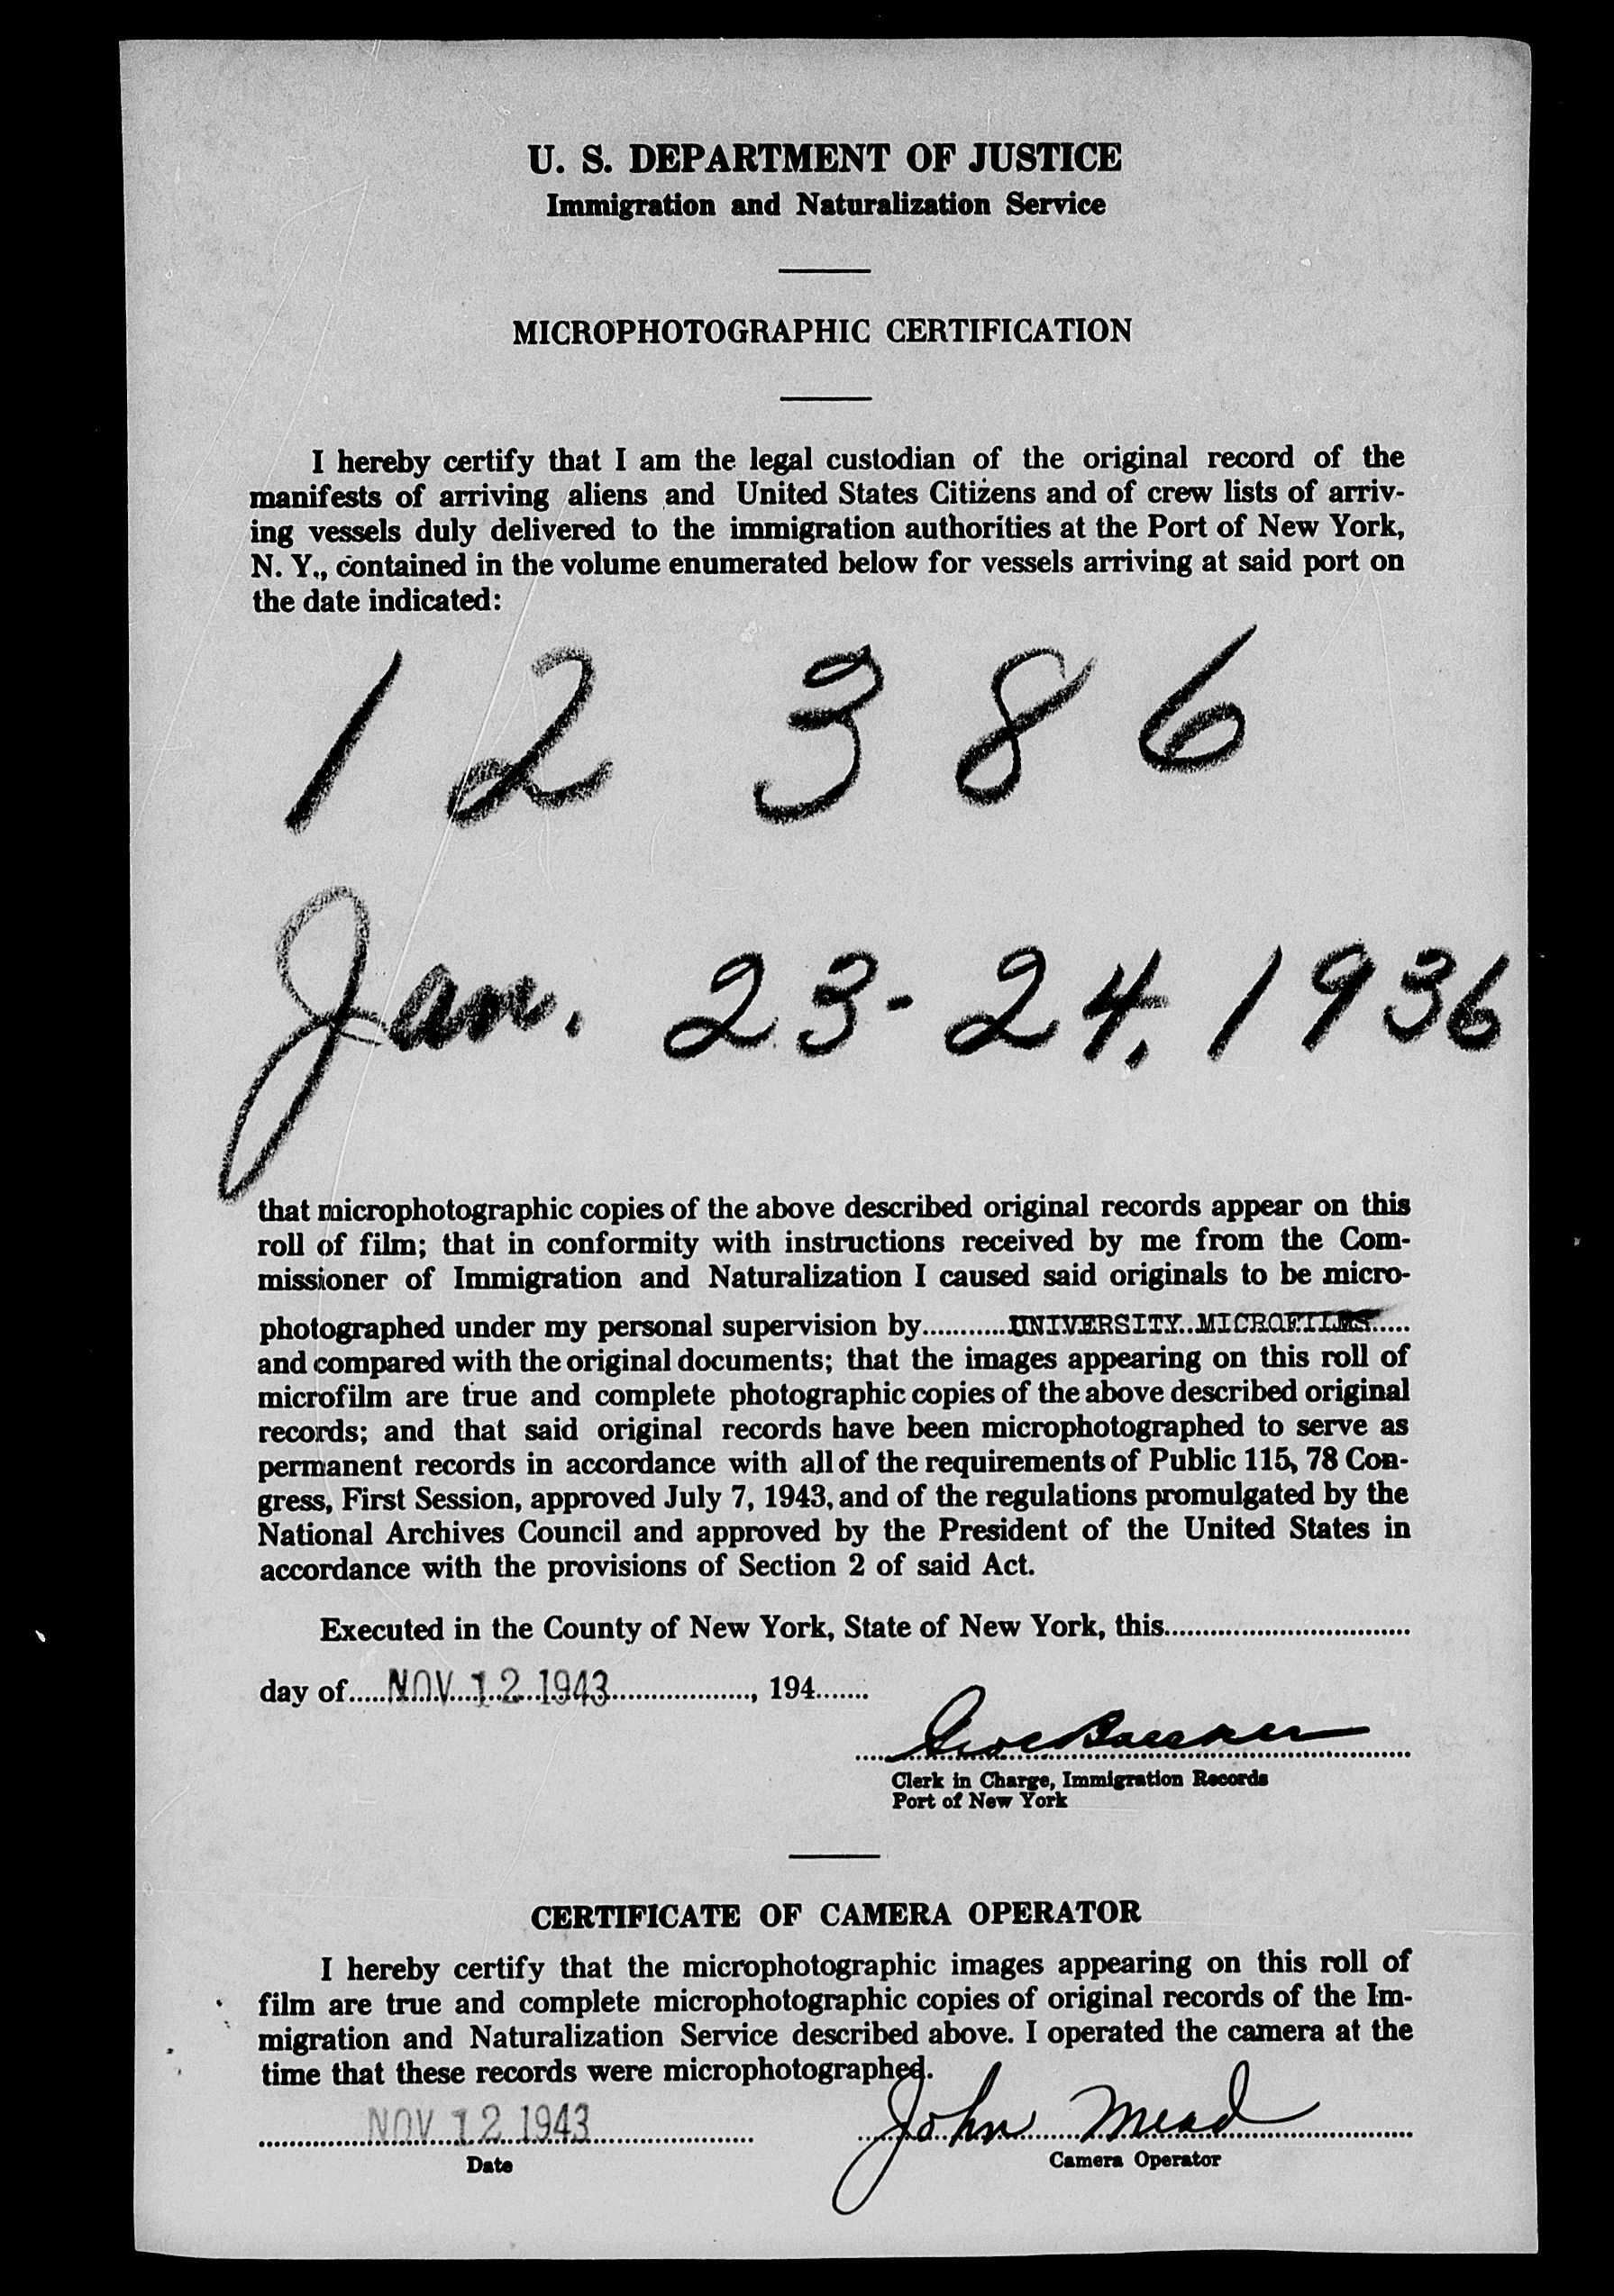 U. S. DEPARTMENT OF JUSTICE
Immigration and Naturalization Service
MICROPHOTOGRAPHIC CERTIFICATION
I hereby certify that I am the legal custodian of the original record of the
manifests of arriving aliens and United States Citizens and of crew lists of arriv-
ing vessels duly delivered to the immigration authorities at the Port of New York,
N. Y., contained in the volume enumerated below for vessels arriving at said port on
the date indicated:
12 386
Jan. 23-24, 1936
that microphotographic copies of the above described original records appear on this
roll of film; that in conformity with instructions received by me from the Com-
missioner of Immigration and Naturalization I caused said originals to be micro-
photographed under my personal supervision by...........UNIVERSITY MICROFILMS.....
and compared with the original documents; that the images appearing on this roll of
microfilm are true and complete photographic copies of the above described original
records; and that said original records have been microphotographed to serve as
permanent records in accordance with all of the requirements of Public 115, 78 Con-
gress, First Session, approved July 7, 1943, and of the regulations promulgated by the
National Archives Council and approved by the President of the United States in
accordance with the provisions of Section 2 of said Act.
Executed in the County of New York, State of New York, this................................
day of.....NOV 12 1943..................., 194.......
Clerk in Charge, Immigration Records
Port of New York
CERTIFICATE OF CAMERA OPERATOR
I hereby certify that the microphotographic images appearing on this roll of
film are true and complete microphotographic copies of original records of the Im-
migration and Naturalization Service described above. I operated the camera at the
time that these records were microphotographed.
NOV 12 1943 John Mead
Date Camera Operator